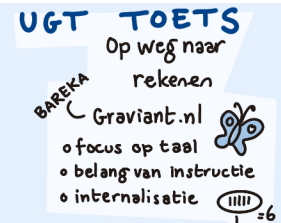 UGT TOETS
Op weg naar
rekenen
BAREKA
Graviant.nl
o focus op taal
o belang van instructie
o internalisatie
=6